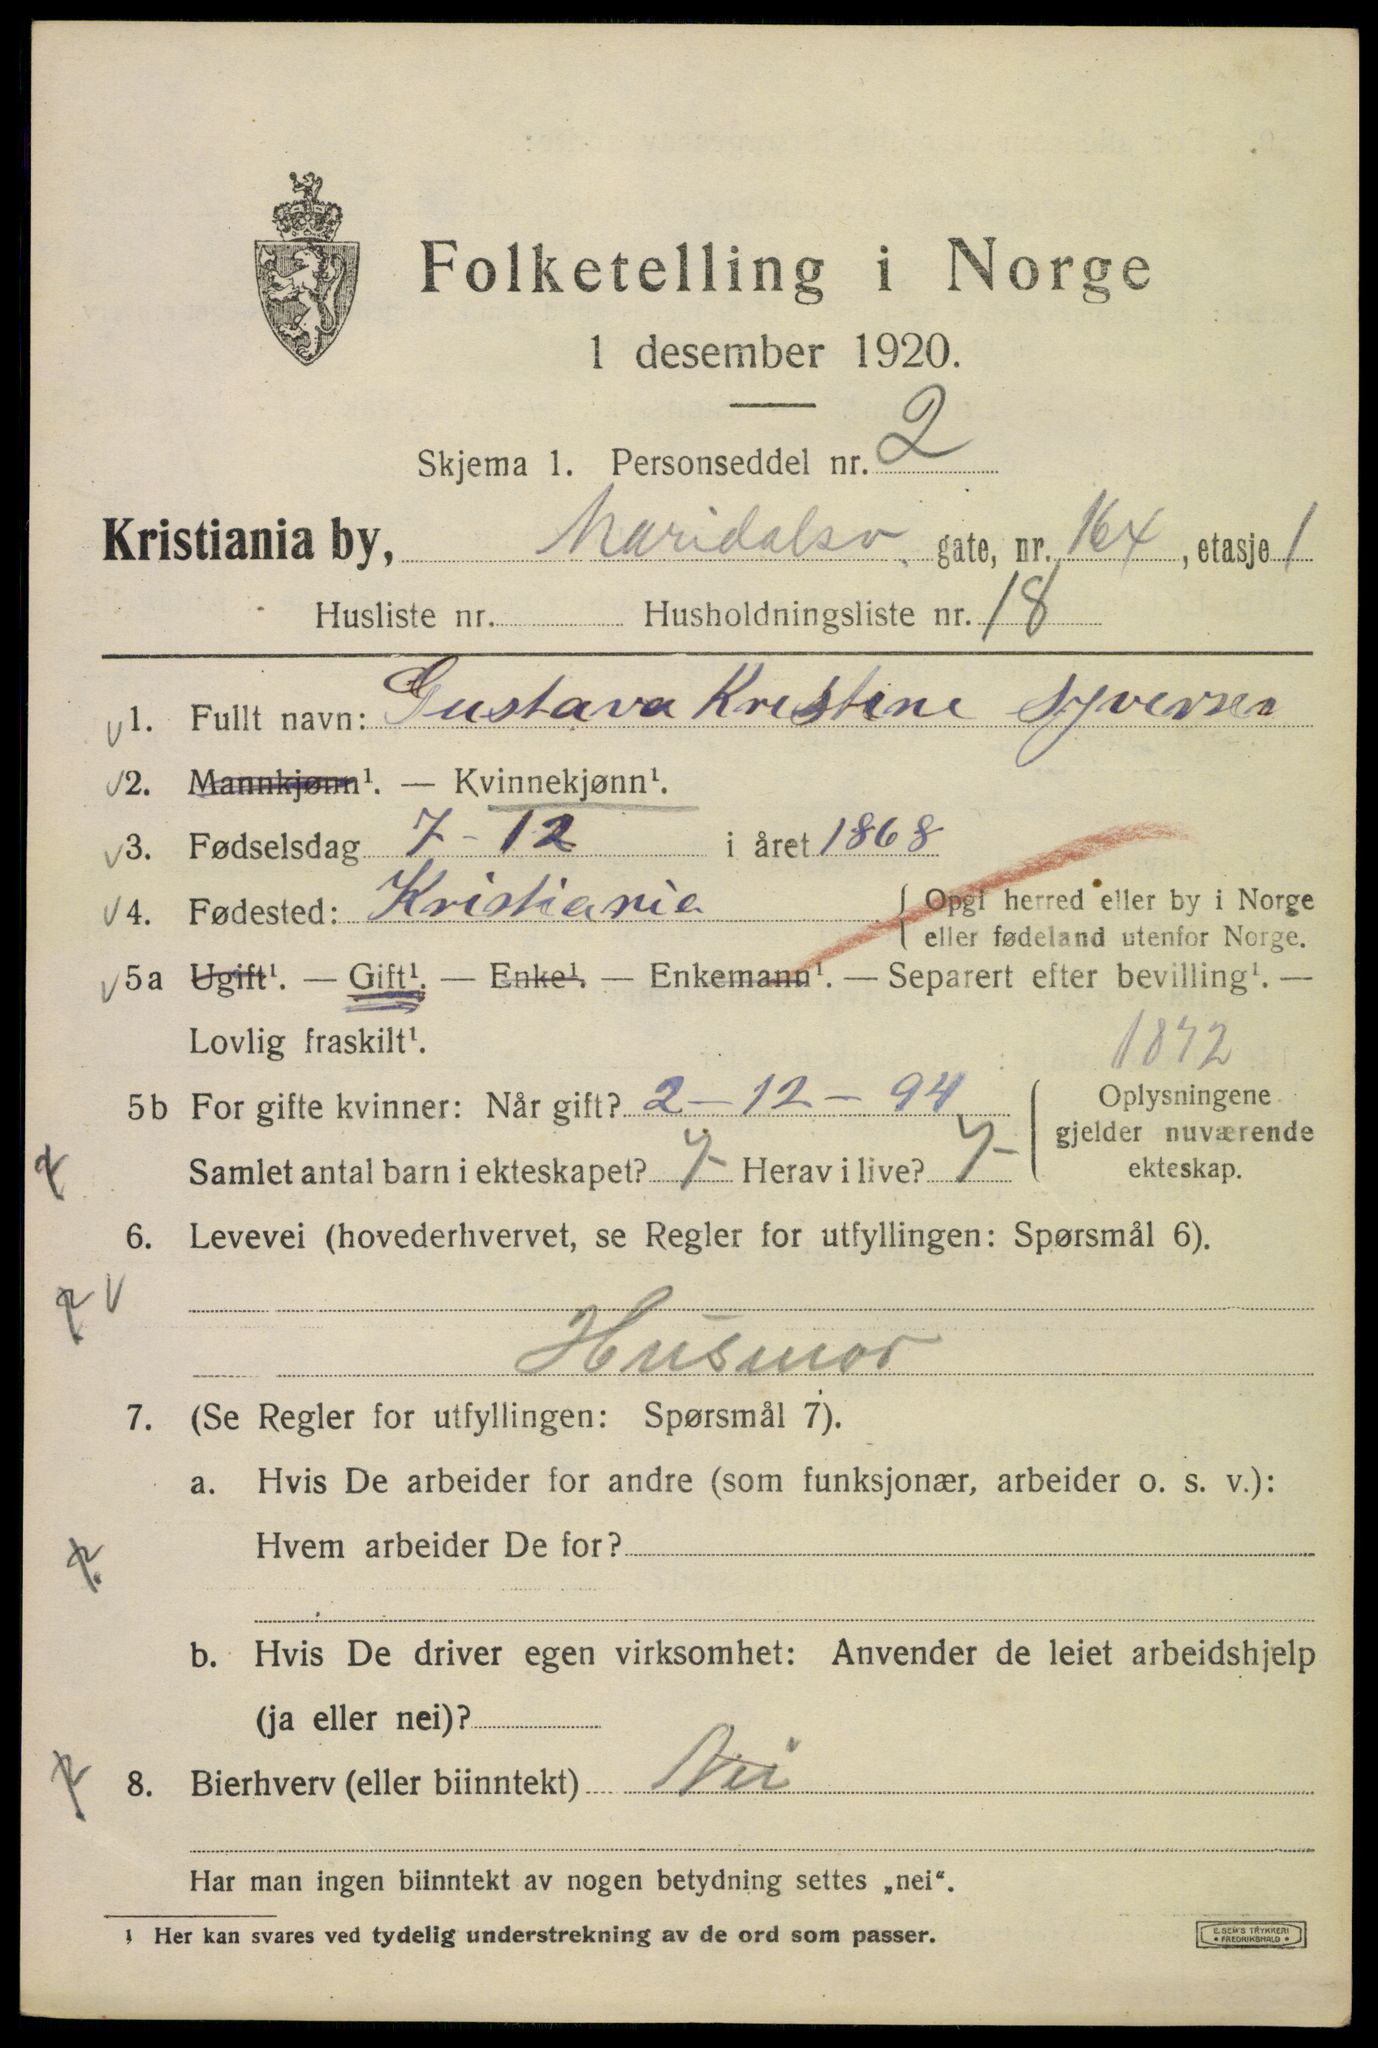 Folketelling i Norge
1 desember 1920.
Skjema 1. Personseddel nr. 2
Kristiania by, Maridalsv. gate, nr. 164, etasje 1
Husliste nr. Husholdningsliste nr. 18
1. Fullt navn: Gustava Kristine Syversen
2. Mannkjønn¹. — Kvinnekjønn¹.
3. Fødselsdag 7-12 i året 1868
4. Fødested: Kristiania { Opgi herred eller by i Norge
eller fødeland utenfor Norge.
5a Ugift¹. — Gift¹. — Enke¹. — Enkemann¹. — Separert efter bevilling¹. —
Lovlig fraskilt¹.
1872
5b For gifte kvinner: Når gift? 2-12-94 { Oplysningene
gjelder nuværende
Samlet antal barn i ekteskapet? 7- Herav i live? 7- ekteskap.
6. Levevei (hovederhvervet, se Regler for utfyllingen: Spørsmål 6).
Husmor
7. (Se Regler for utfyllingen: Spørsmål 7).
a. Hvis De arbeider for andre (som funksjonær, arbeider o. s. v.):
Hvem arbeider De for?
b. Hvis De driver egen virksomhet: Anvender de leiet arbeidshjelp
(ja eller nei)?
8. Bierhverv (eller biinntekt) Nei
Har man ingen biinntekt av nogen betydning settes „nei“.
¹ Her kan svares ved tydelig understrekning av de ord som passer.
E. SEM'S TRYKKERI
• FREDRIKSHALD •